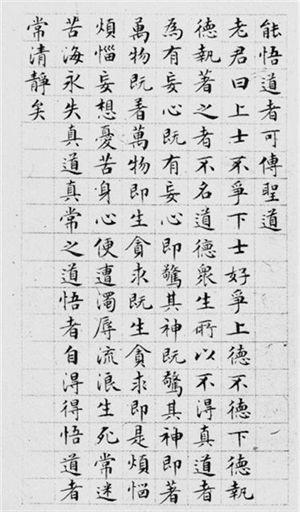 能悟道者可傳聖道
老君曰上士不爭下士好爭上德不德下德執
德執著之者不名道德眾生所以不得真道者
為有妄心既有妄心即驚其神既驚其神即著
萬物既著萬物即生貪求既生貪求即是煩惱
煩惱妄想憂苦身心便遭濁辱流浪生死常迷
苦海永失真道真常之道悟者自得得悟道者
常清靜矣